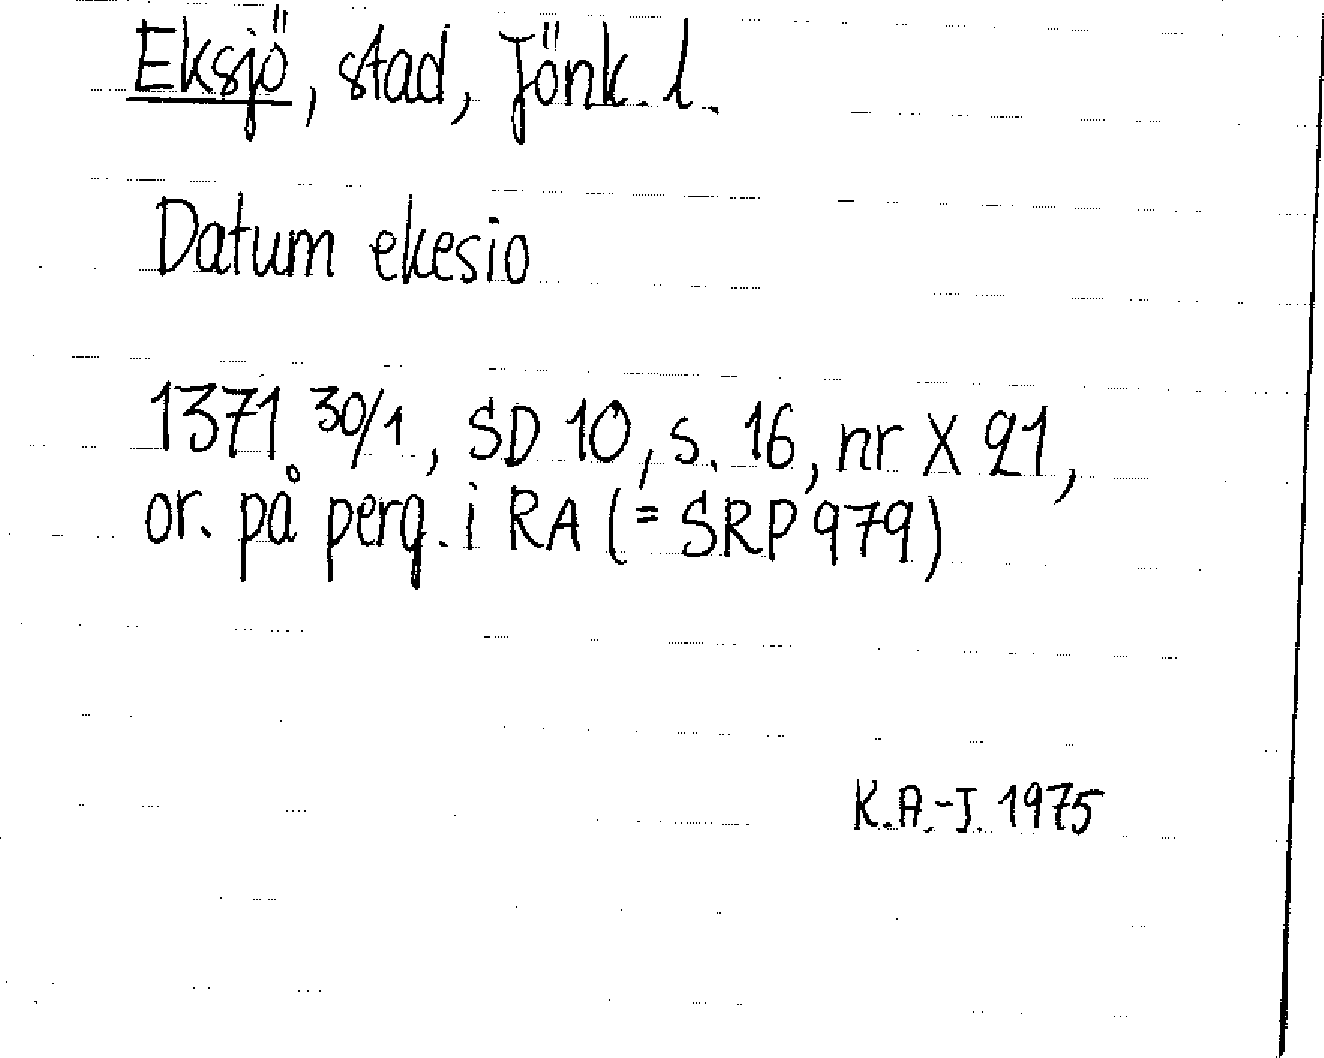 Eksjö, stad, Jönk. l.
Datum ekesio
1371 30/1, SD 10, s. 16, nr X 21,
or. på perg. i RA (= SRP 979)
K.A.-J. 1975